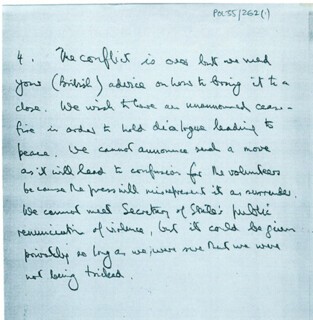 POL35/262(1)
4. The conflict is over but we need
your (British) advice on how to bring it to a
close. We wish to have an unannounced cease-
fire in order to hold dialogue leading to
peace. We cannot announce such a move
as it will lead to confusion for the volunteers
because the press will misrepresent it as surrender.
We cannot meet Secretary of State's public
renunciation of violence, but it could be given
privately so long as we were sure that we were
not being tricked.